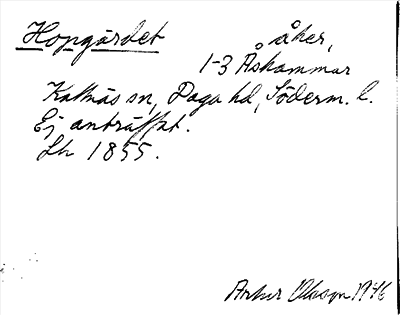 Hopgärdet åker,
1-3 Åshammar
Kattnäs sn, Daga hd, Söderm. l.
Ej anträffat.
Lh 1855.
Artur Olsson 1946